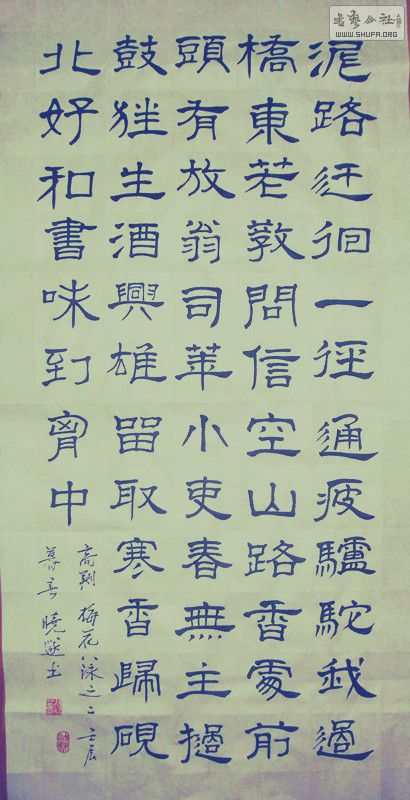 书艺公社
WWW.SHUFA.ORG
泥路迂徊一徑通疲驢駝我過
橋東若教問信空山路香處前
頭有放翁司華小吏春無主撾
鼓狂生酒興雄留取寒香歸硯
北好和書味到胷中
高翔 梅花八詠之二 壬辰
暮春 曉 書